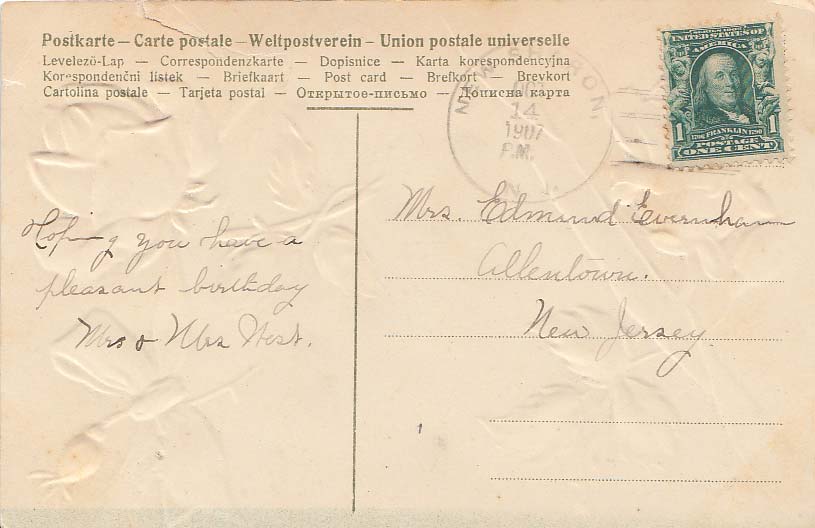 Postkarte – Carte postale – Weltpostverein – Union postale universelle
Levelező-Lap — Correspondenzkarte — Dopisnice — Karta korespondencyjna
Korespondenční lístek — Briefkaart — Post card — Brefkort — Brevkort
Cartolina postale — Tarjeta postal — Открытое-письмо — Дописна карта
OCT
14
1907
P.M.
N.J.
UNITED STATES OF
AMERICA
1706 FRANKLIN 1790
1 POSTAGE 1
ONE CENT
Hoping you have a
pleasant birthday
Mrs & Mrs West.
Mrs. Edmund Evernham
Allentown.
New Jersey.